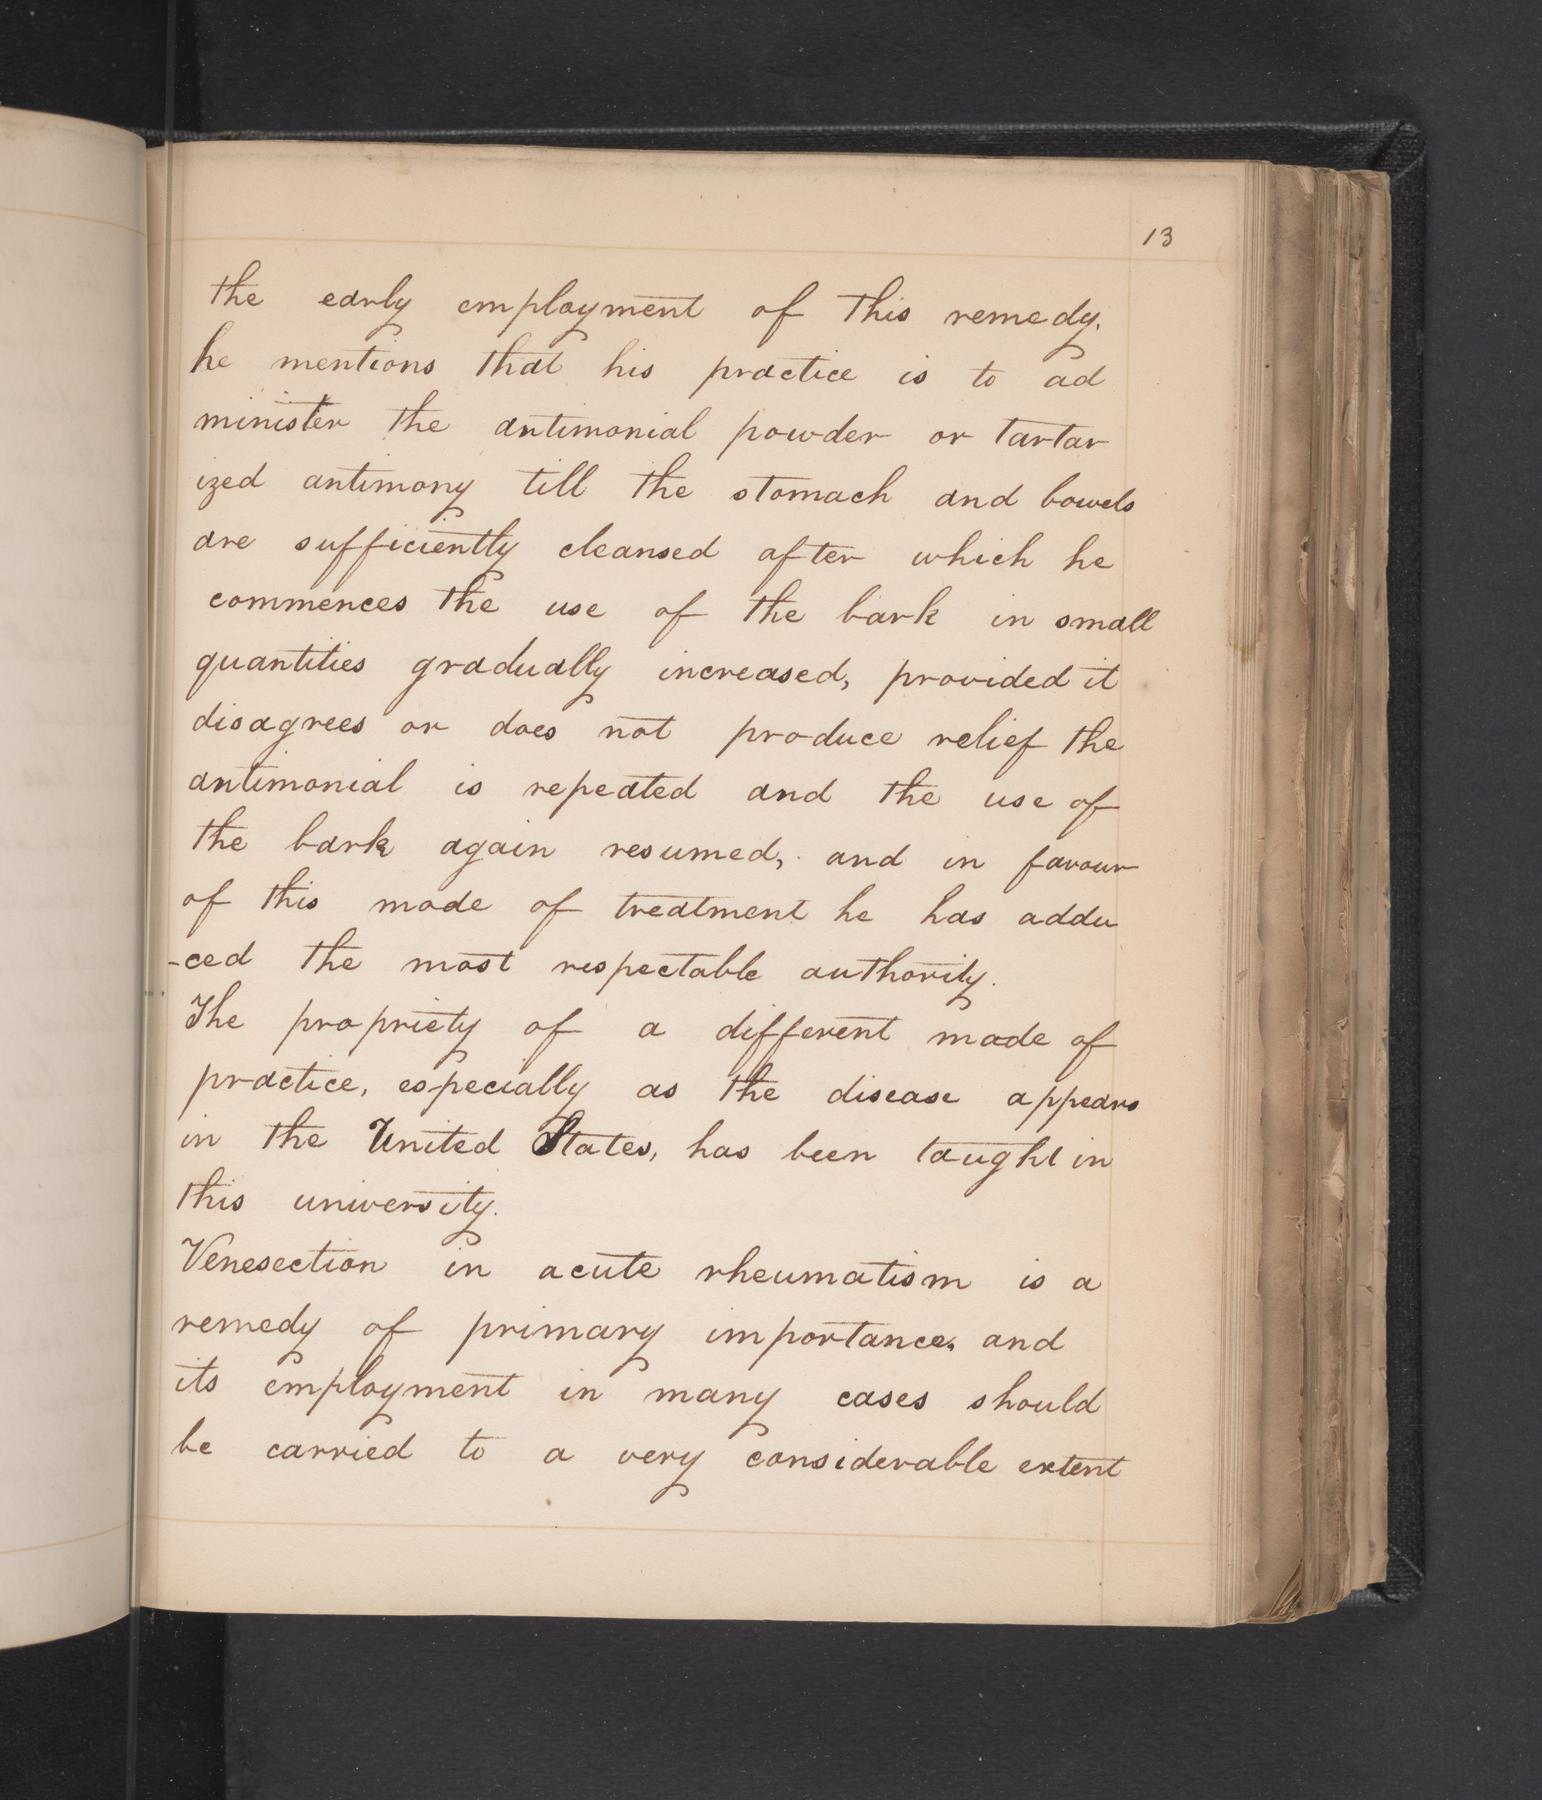 13
the early employment of this remedy.
he mentions that his practice is to ad
minister the antimonial powder or tartar
ized antimony till the stomach and bowels
are sufficiently cleansed after which he
commences the use of the bark in small
quantities gradually increased, provided it
disagrees or does not produce relief the
antimonial is repeated and the use of
the bark again resumed, and in favour
of this mode of treatment he has addu
-ced the most respectable authority.
The propriety of a different mode of
practice, especially as the disease appears
in the United States, has been taught in
this university.
Venesection in acute rheumatism is a
remedy of primary importance, and
its employment in many cases should
be carried to a very considerable extent